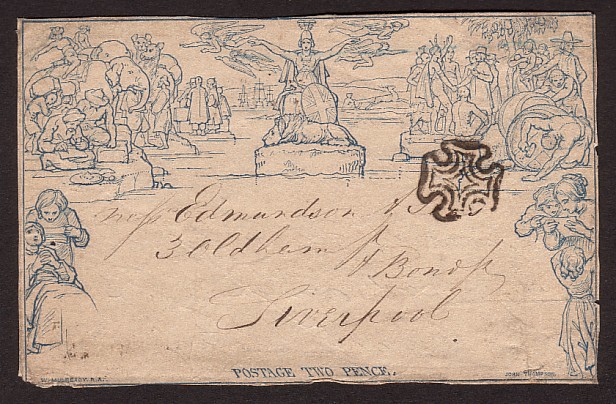 Edmundson &
3 Oldham St
Bond St
Liverpool
POSTAGE TWO PENCE.
W. MULREADY. R.A.
JOHN THOMPSON